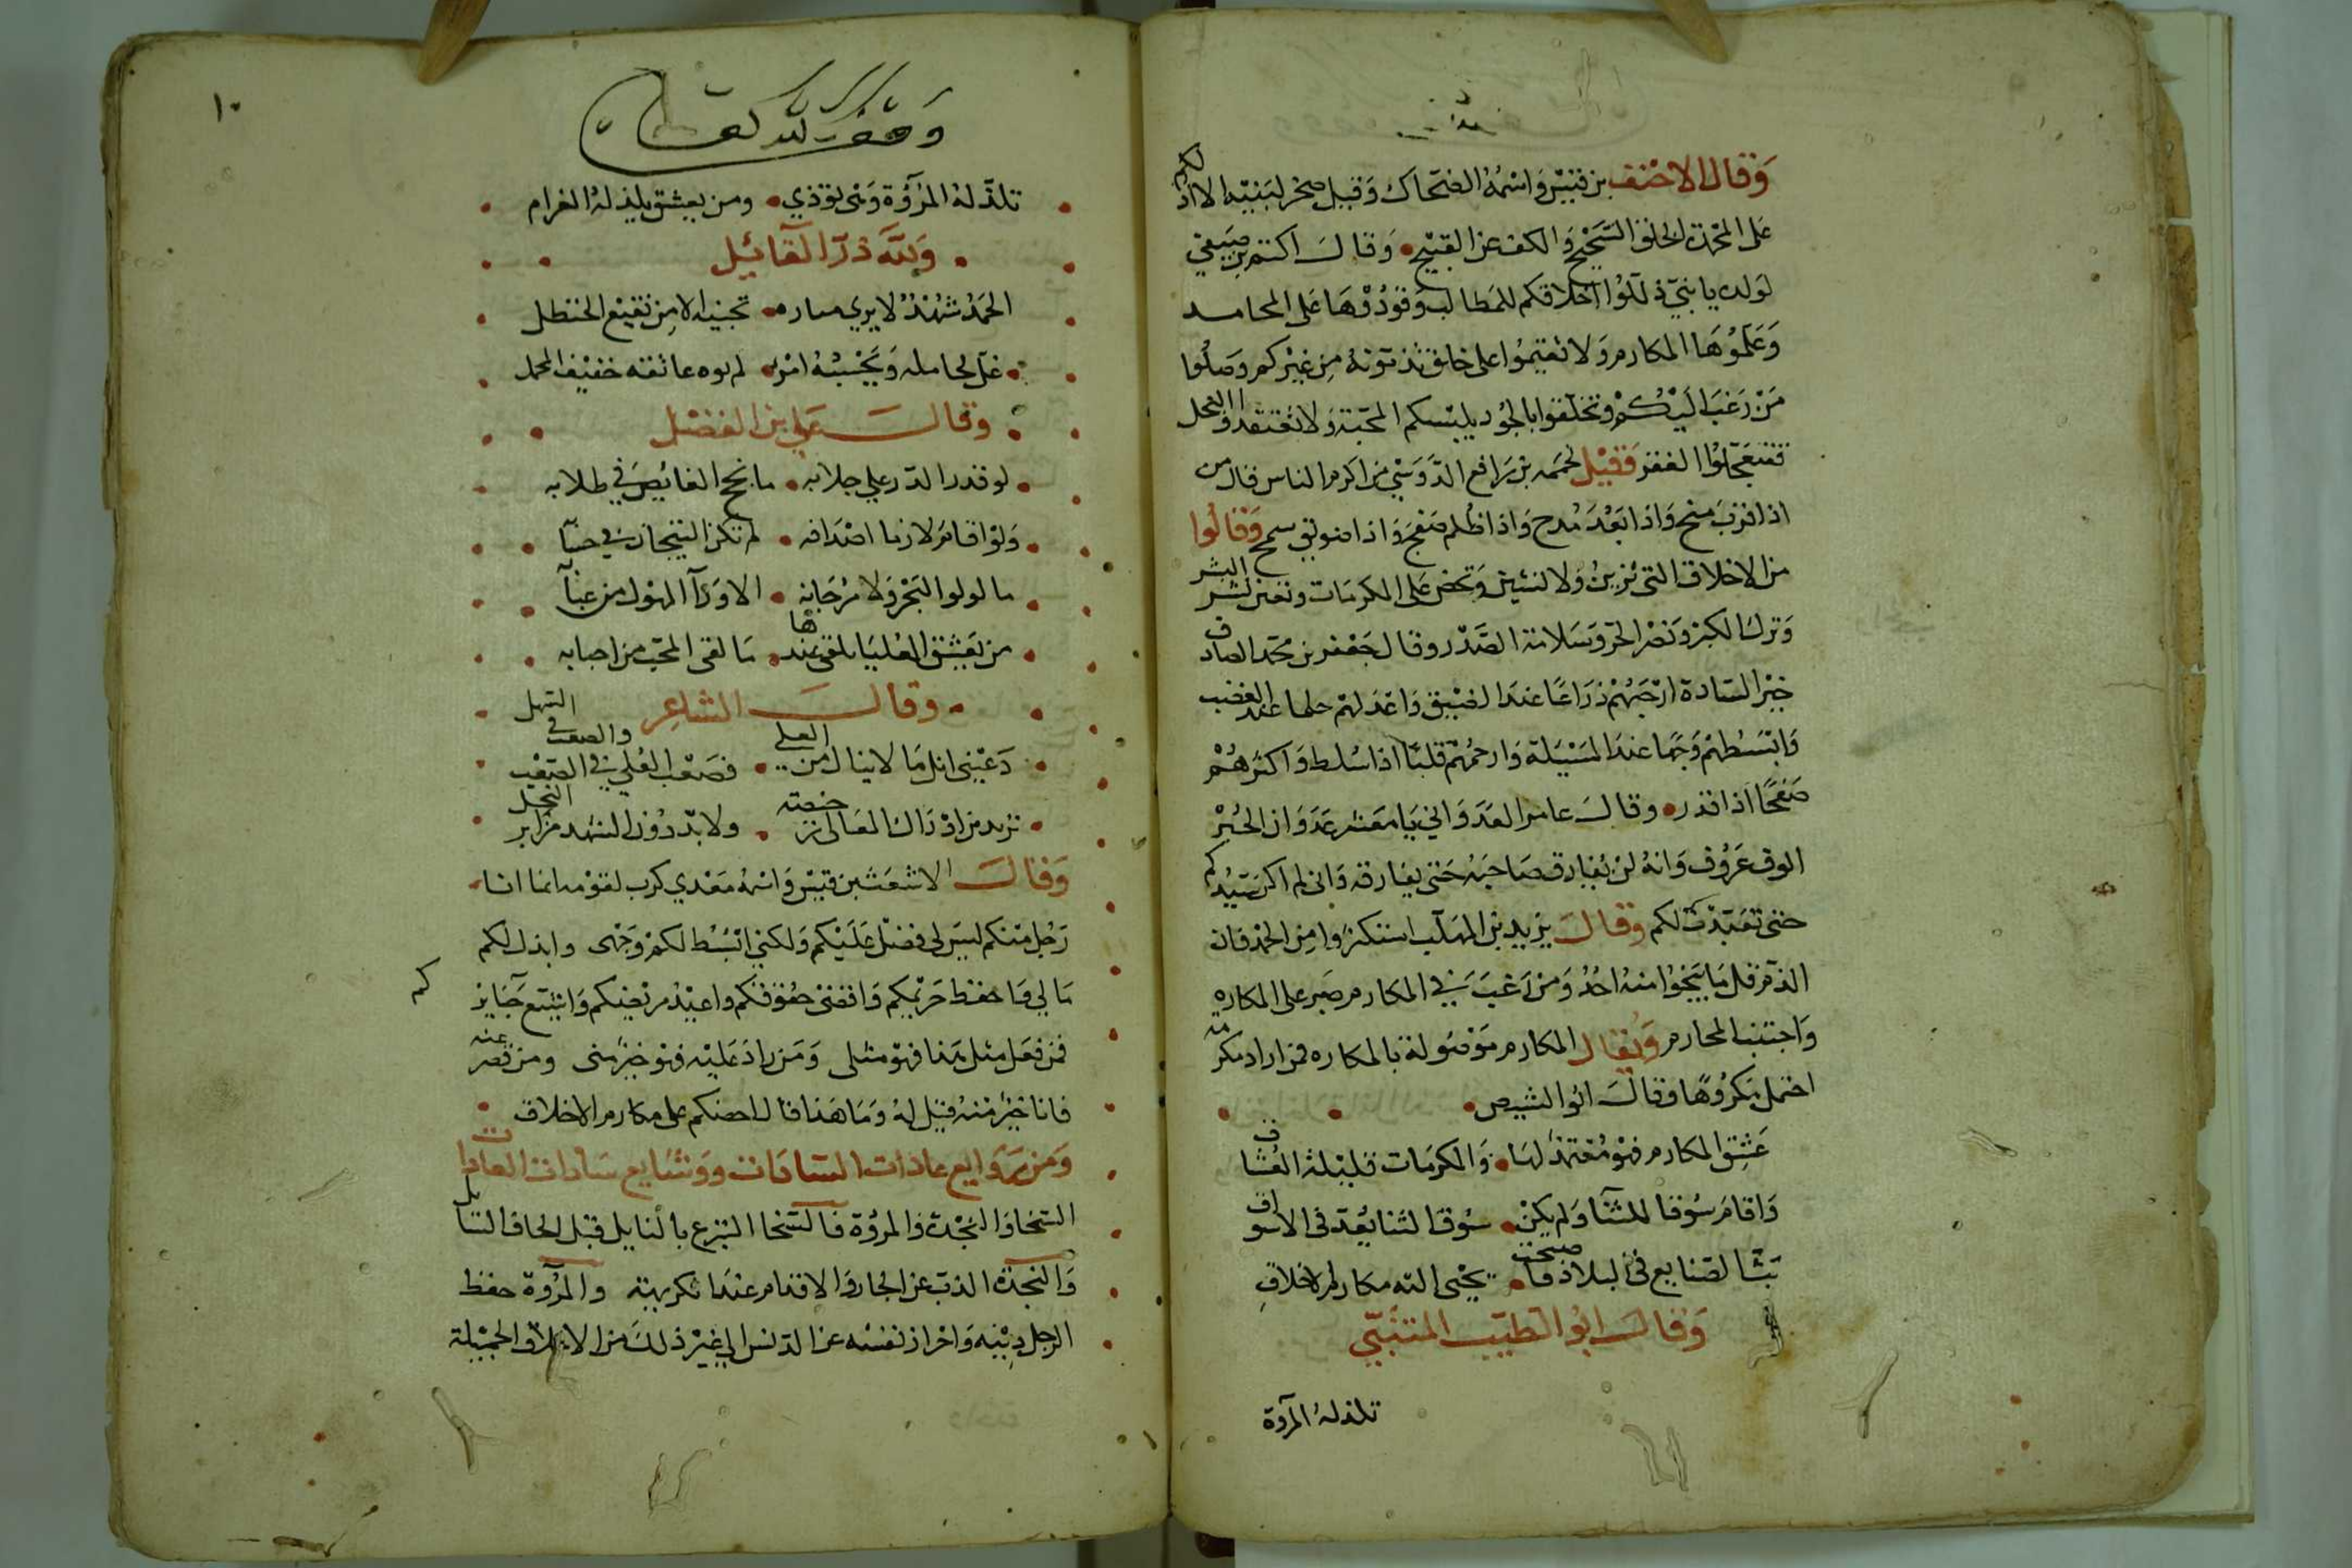 وَقَال الاحْنف بن قيْس وَاسْمُهُ الضحّاك وَقيل صخر لبَنيْه الا ادُلكم
على المحْمدة الخلق السَّجيْح وَالكف عن القبيْح وَقال اكثم بن صَيفي
لولده يا بنيّ ذللوُا اخلاقكم للمَطالب وَقوُدُوْهَا على المحامد
وَعَلموُهَا المكارم وَلا تقيموُا على خلق تذمّونهُ مِن غيْركم وَصلُوا
مَنْ رَغبَ اليْكُمْ وتخلّقوا بالجوُد يلبْسكم المحبّة وَلا تعْتقدوا البخل
فتتعجّلوُا الفقر فقيْل لحممه بن رَافع الدَّوسَيْ من اكرم الناس قال من
اذا قرُبَ منح وَاذا بَعُدَ مُدح وَاذا ظُلم صَفَحَ وَاذا ضويق سمح وَقالُوا
من الاخلاق التي تُزينُ وَلا تشين وَتحض على المكرمَات البشر
وَترك الكبر وَنصْر الحق وَسَلامة الصَّدْر وقال جَعْفر بن محمّد الصادق
خيْر السّادة ارْحَبُهُمْ ذرَاعًا عندَ الضيْق وَاعْدَلهم حلما عند الغضب
وَابْسَطُهمْ وَجْها عندَ المسْيَلة وَارحمُهم قلبًا اذا سُلط وَاكثرهُمْ
صَفحًا اذا قدر وقال عامر العَدوَاني يَا معشر عَدوَان الخيْر
الوف عَرُوف وَانهُ لنْ يُفارق صَاحبَهُ حَتى يفارقه وَاني لم اكن سَيّدكم
حتى تعَبّدْت لكم وَقال يزيد بن المهلّب استكثروا مِن الحمْد فان
الذمّ قل مَا ينجُوا منهُ احدُ وَمن رَغبَ في المكارم صَبر على المكاره
وَاجتنب المحارم وَيُقال المكارم موْصُولة بالمكاره فمن اراد مكرمة
احتمل مَكرُوهًا وقال ابُوا الشيص
عَشِقَ المكارم فهوَ مُعْتمدٌ لهَا وَالمكرمَات قليْلة العُشّاق
وَاقامَ سُوقا للثنَا وَلم يكنْ سُوق الثنا يُعدّ في الاسواق
بَثّ الصّنايع في البلاد فاصبحت يجْبى اليه مكارم الاخلاقِ
وَقال ابُوا الطيّب المتنبّي
تلذله المروة
١٠
وَقف لله تعالى
تلذّ لهُ المرُوّة وَهى تؤذي ومن يعشق يلذ لهُ الغرام
وَللّه دَرّ القائِل
الحَمْدُ شهْدٌ لا يري مشاره تجنيه الا مِن نقيْع الحنظل
غل لحامله وَيَحْسبُهُ امْرُء لم يوه عاتقه خفيْف المحمل
وَقال عَلي بن الفضْل
لو قدر الدّر علي جلابه ما نجح الغايُصَ في طلابه
وَلوْ اقامَ لازما اصْدَافه لم تكن التيجان في حسَابه
ما لولوا البَحْر وَلا مُرْجَانه الا وَرَآ الهوْل من عبَابه
من يَعشق العُليَا يلق عندها مَا لقى المحبّ من احبابه
وَقال الشاعِر
دَعيْنى انل مَا لا ينال من العلى فصَعْب العُلى في الصّعْب والسهل في السهل
تريد من ادْرَاك المعَالى رخيصة ولا بدّ دوُن الشهد من ابر النحل
وَقال الاشعَث بن قيْس وَاسْمُهُ مَعْدي كرب لقوْمه انما انا
رَجُل منكم ليْسَ لى فضل عَليْكم وَلكني ابْسُط لكمْ وَجْهى وابذل لكم
مَالي وَاحفظ حَرْيمكم وَاقضى حُقوُقكم واعوْد مريْضكم وَاشيّع جَنايزكم
فمَن فعَل مثل هَذا فهوَ مثلى وَمَن زادَ عَليْه فهو خيْر منى ومن قصر عنه
فانا خيْر منهُ قيْل لهُ وَمَا هَذا قال احضكم على مكارم الاخلاق
السّخا وَالنجْدة وَالمروُة فالسّخا التبرع بالنايل قبْل الحاف السّايل
وَالنجدَة الذبّ عن الجار وَالاقدام عندَ الكريهة والمرُوّة حفظ
الرجل دِيْنه وَاحراز نفسُه عن الدّنس الى غيْر ذلكَ من الاخلاق الجميْلة